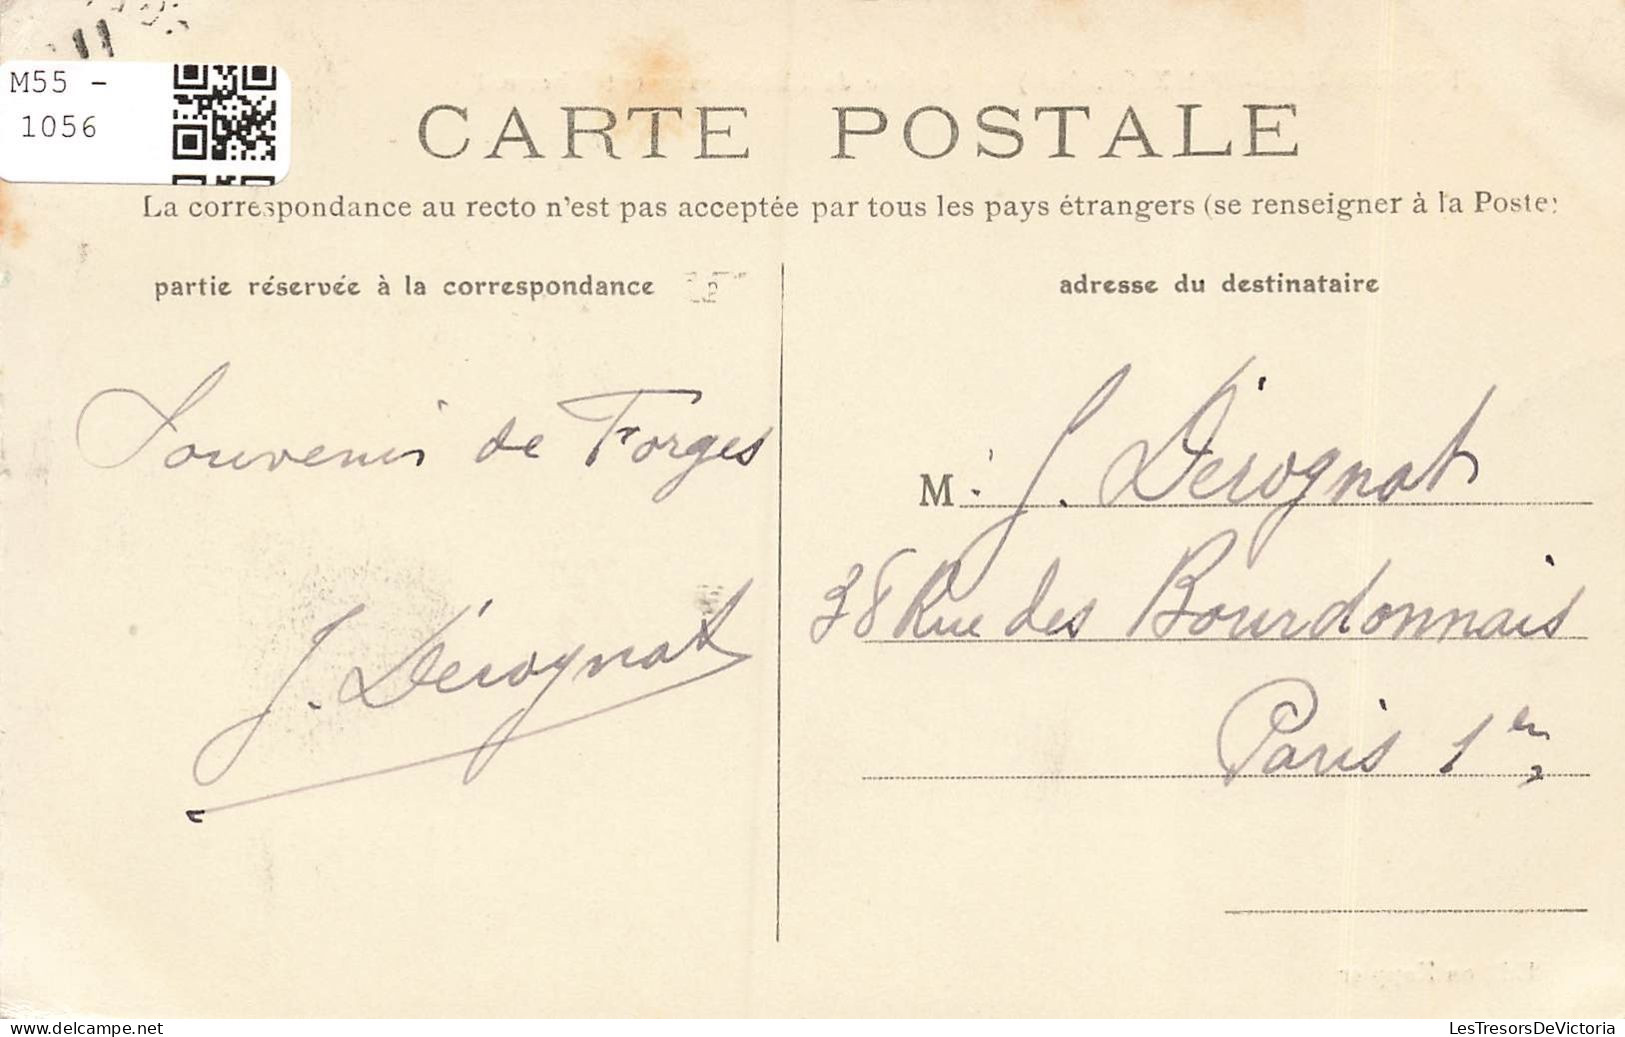 M55 -
1056
CARTE POSTALE
La correspondance au recto n'est pas acceptée par tous les pays étrangers (se renseigner à la Poste)
partie réservée à la correspondance
adresse du destinataire
Souvenir de Forges
J. Dérognat
M. J. Dérognat
38 Rue des Bourdonnais
Paris 1er
www.delcampe.net
LesTresorsDeVictoria